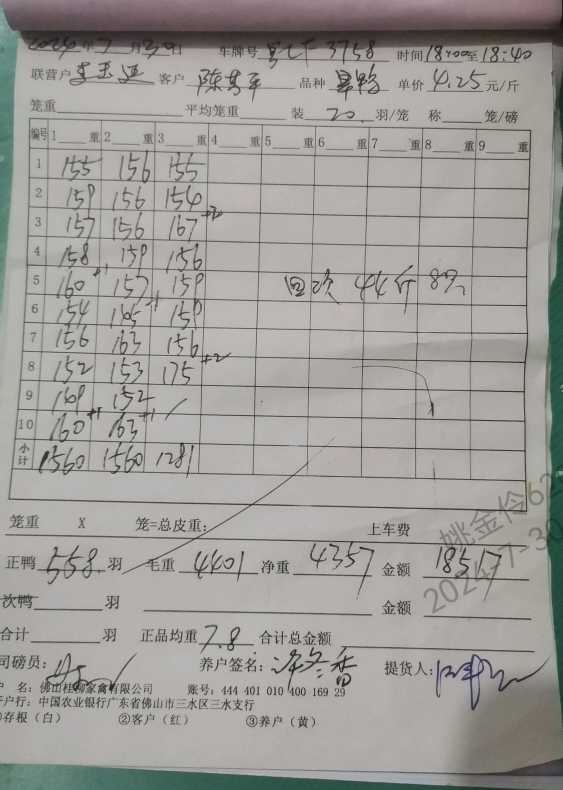 2024年7月30日 车牌号 3758 时间18:00至18:40
联营户 客户 陈 品种 单价 4.25 元/斤
笼重 平均笼重 装 20 羽/笼 称 笼/磅
编号 1 重 2 重 3 重 4 重 5 重 6 重 7 重 8 重 9 重
1 155 156 155
2 159 156 154
3 157 156 167 +2
4 158 159 156
5 160 +1 157 159
回次 44斤
6 154 165 +1 159
7 156 163 156
8 152 153 175 +2
9 149 152
10 160 +1 163 +1
小计 1560 1560 1281
笼重 X 笼=总皮重: 上车费
正鸭 558 羽 毛重 4401 净重 4357 金额 18517
次鸭 羽 金额
合计 羽 正品均重 7.8 合计总金额
司磅员: 养户签名: 提货人:
户 名: 佛山桂柳家禽有限公司 账号: 444 401 010 400 169 29
开户行: 中国农业银行广东省佛山市三水区三水支行
①存根（白） ②客户（红） ③养户（黄）
姚金伶62
2024-7-30